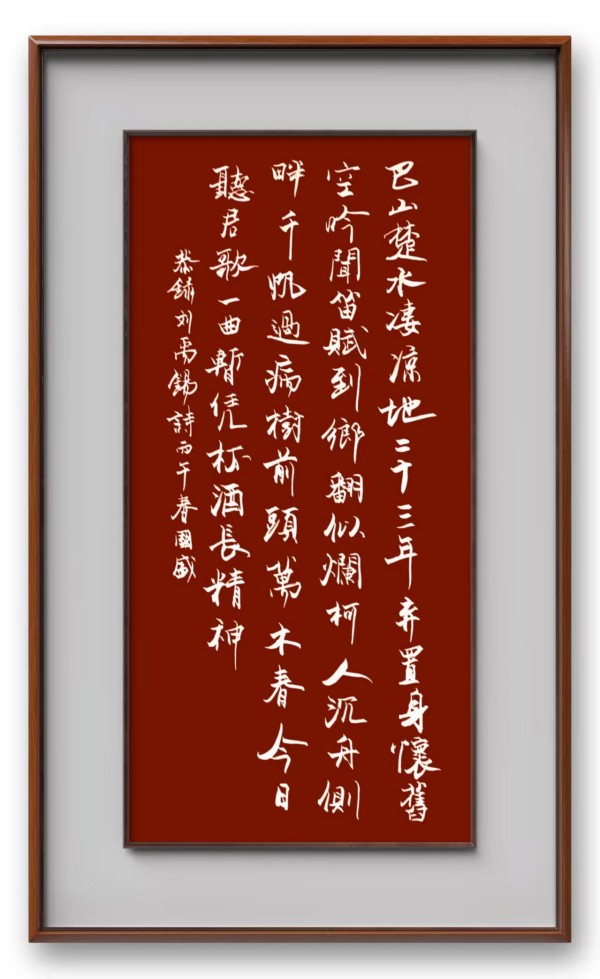 巴山楚水凄凉地二十三年弃置身懷舊
空吟聞笛賦到鄉翻似爛柯人沉舟側
畔千帆過病樹前頭萬木春今日
聽君歌一曲暫凭杯酒長精神
恭録刘禹錫詩丙午春國威